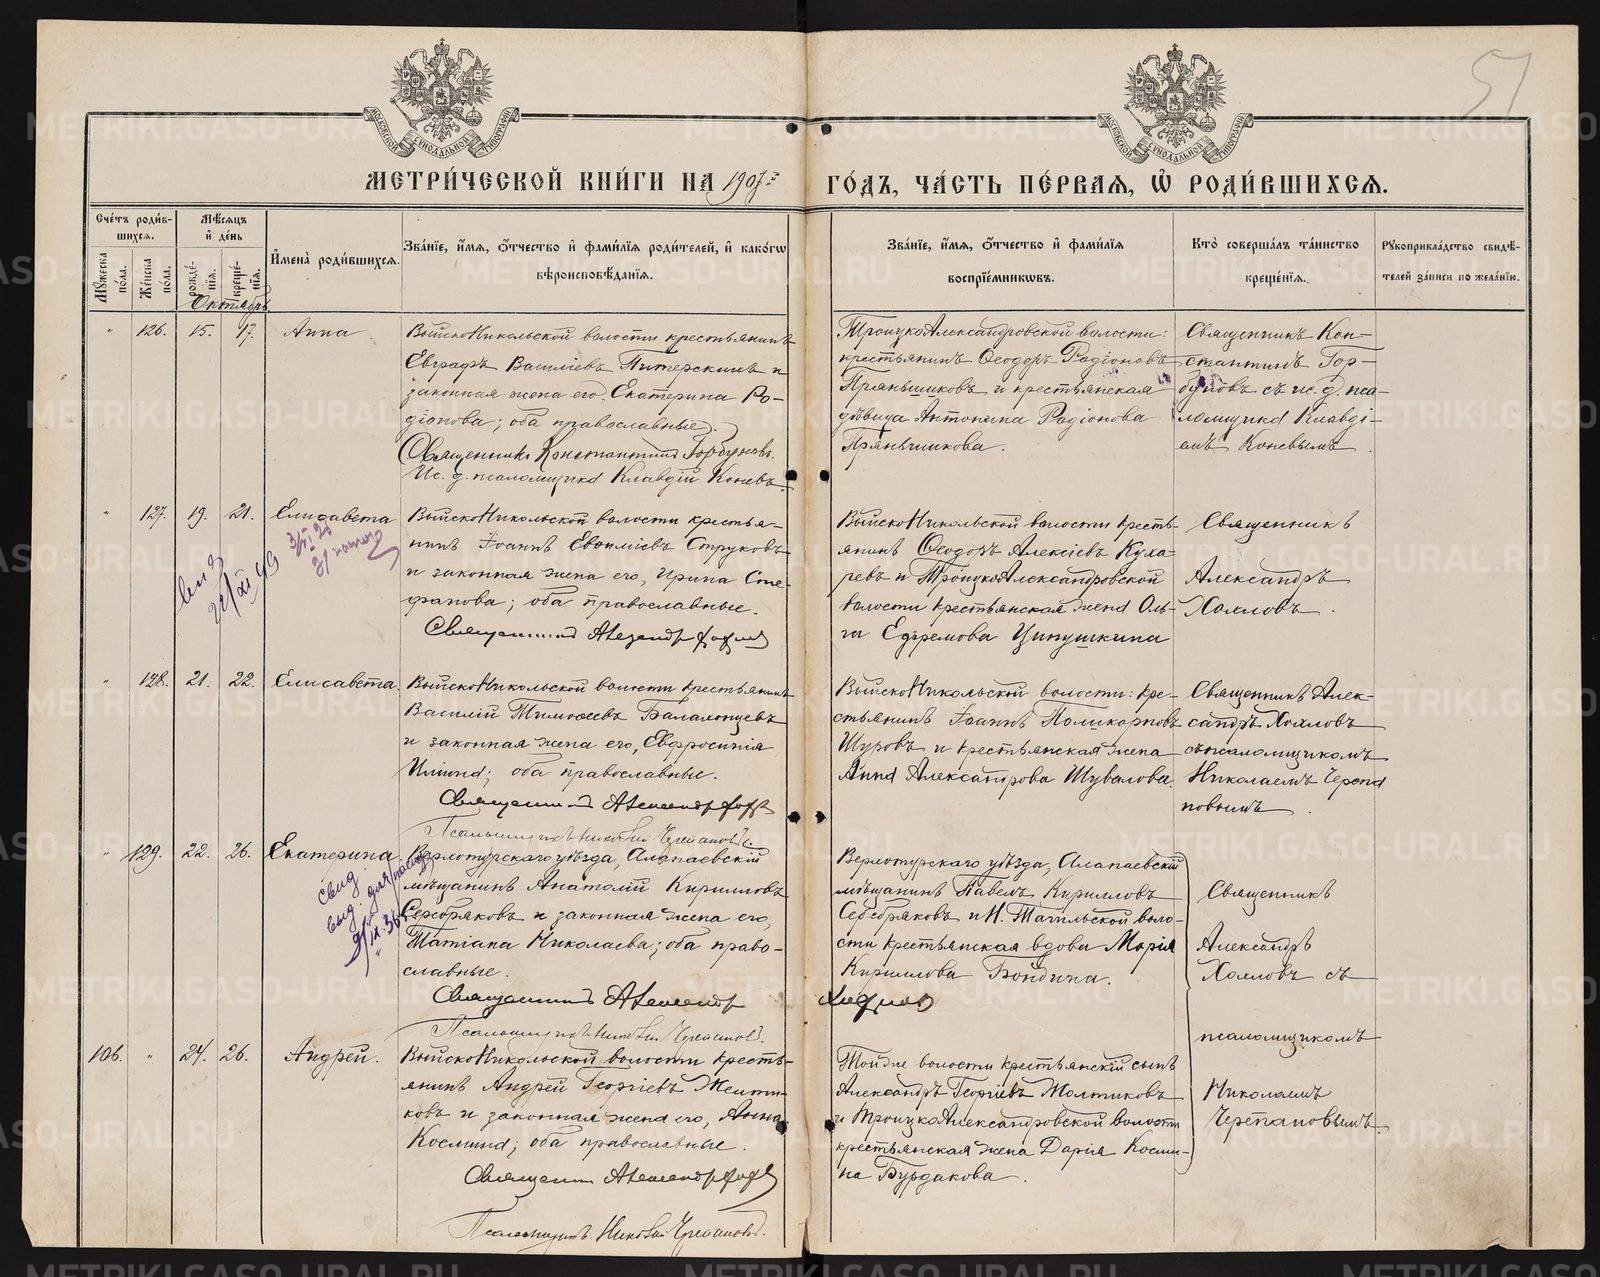 51
МОСКОВСКОЙ СѴНОДАЛЬНОЙ ТИПОГРАФІИ
МОСКОВСКОЙ СѴНОДАЛЬНОЙ ТИПОГРАФІИ
МЕТРИ́ЧЕСКОЙ КНИ́ГИ НА 1907й ГО́ДЪ, ЧА́СТЬ ПЕ́РВАЯ, Ѡ РОДИ́ВШИХСЯ.
Счетъ роди́в-
шихся.
Мѣсяцъ
и́ де́нь
Мужеска по́ла.
Же́нска по́ла.
рожде́-
нїя.
креще́-
нїя.
И҆мена̀ роди́вшихся.
Зва́нїе, и҆́мя, ѻ҆́тчество и҆ фами́лїя роди́телей, и҆ како́гѡ
вѣроисповѣ́данїя.
Зва́нїе, и҆́мя, ѻ҆́тчество и҆ фами́лїя
воспрїе́мникѡвъ.
Кто̀ соверша́лъ та́инство
креще́нїя.
Рукоприкла́дство свидѣ́-
телей за́писи по жела́нїю.
Октябрь
" 126. 15. 17. Анна
ВыйскоНикольской волости крестьянинъ
Евграфъ Василіевъ Питерскихъ и
законная жена его, Екатерина Ро-
діонова; оба православные.
Священникъ Константинъ Горбуновъ.
Ис. д. псаломщика Клавдій Коневъ.
ТроицкоАлександровской волости:
крестьянинъ Ѳеодоръ Радіоновъ
Пряньшиковъ и крестьянская
дѣвица Антонина Радіонова
Пряньшикова.
Священникъ Кон-
стантинъ Гор-
буновъ съ ис. д. пса-
ломщика Клавді-
емъ Коневымъ
" 127. 19. 21. Елисавета
ВыйскоНикольской волости крестья-
нинъ Іоаннъ Евѳиміевъ Струковъ
и законная жена его, Ирина Сте-
фанова; оба православные.
Священникъ Александръ Хохловъ
ВыйскоНикольской волости кресть-
янинъ Ѳеодоръ Алексіевъ Куха-
ревъ и ТроицкоАлександровской
волости крестьянская жена Оль-
га Ефремова Ципушкина
Священникъ
Александръ
Хохловъ.
" 128. 21. 22. Елисавета.
ВыйскоНикольской волости крестьянинъ
Василій Тимоѳеевъ Балакинцевъ
и законная жена его, Евфросинія
Илiина; оба православные.
Священникъ Александръ Хохловъ
Псаломщикъ Николай Черепановъ.
ВыйскоНикольской волости: кре-
стьянинъ Іоаннъ Поликарповъ
Шуровъ и крестьянская жена
Анна Александрова Шувалова.
Священникъ Алек-
сандръ Хохловъ
съ псаломщикомъ
Николаемъ Черепа
новымъ
" 129. 22. 26. Екатерина.
Верхотурскаго уѣзда, Алапаевскій
мѣщанинъ Анатолій Кирилловъ
Серебряковъ и законная жена его,
Татіана Николаева; оба право-
славные.
Священникъ Александръ Хохловъ
Псаломщикъ Николай Черепановъ.
Верхотурскаго уѣзда, Алапаевскій
мѣщанинъ Павелъ Кирилловъ
Серебряковъ и Н. Тагильской воло-
сти крестьянская вдова Марія
Кириллова Бондина.
Священникъ
Александръ
Хохловъ съ
псаломщикомъ
Николаемъ
Черепановымъ.
106. " 24. 26. Андрей.
ВыйскоНикольской волости кресть-
янинъ Андрей Георгіевъ Желти-
ковъ и законная жена его, Анна
Космина; оба православные.
Священникъ Александръ Хохловъ
Псаломщикъ Николай Черепановъ.
Той же волости крестьянскій сынъ
Александръ Георгіевъ Молтиковъ
и ТроицкоАлександровской волости
крестьянская жена Дарія Косми-
на Бурдакова.
METRIKI.GASO-URAL.RU